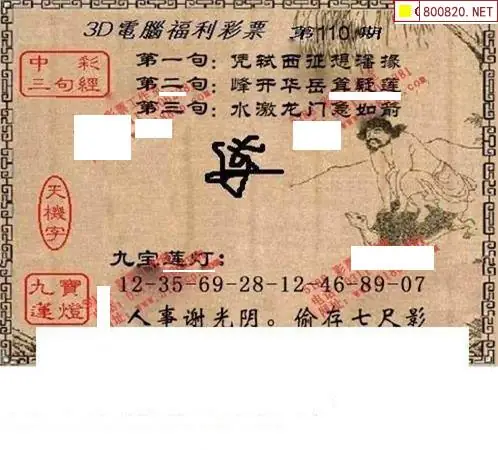 G800820.NET
3D電腦福利彩票 第110期
中彩
三句經
第一句：凭轼西征想潘掾
第二句：峰开华岳耸疑莲
第三句：水激龙门急如箭
天機字
九宝莲灯：
九寶
蓮燈
12-35-69-28-12-46-89-07
人事谢光阴。偷存七尺影